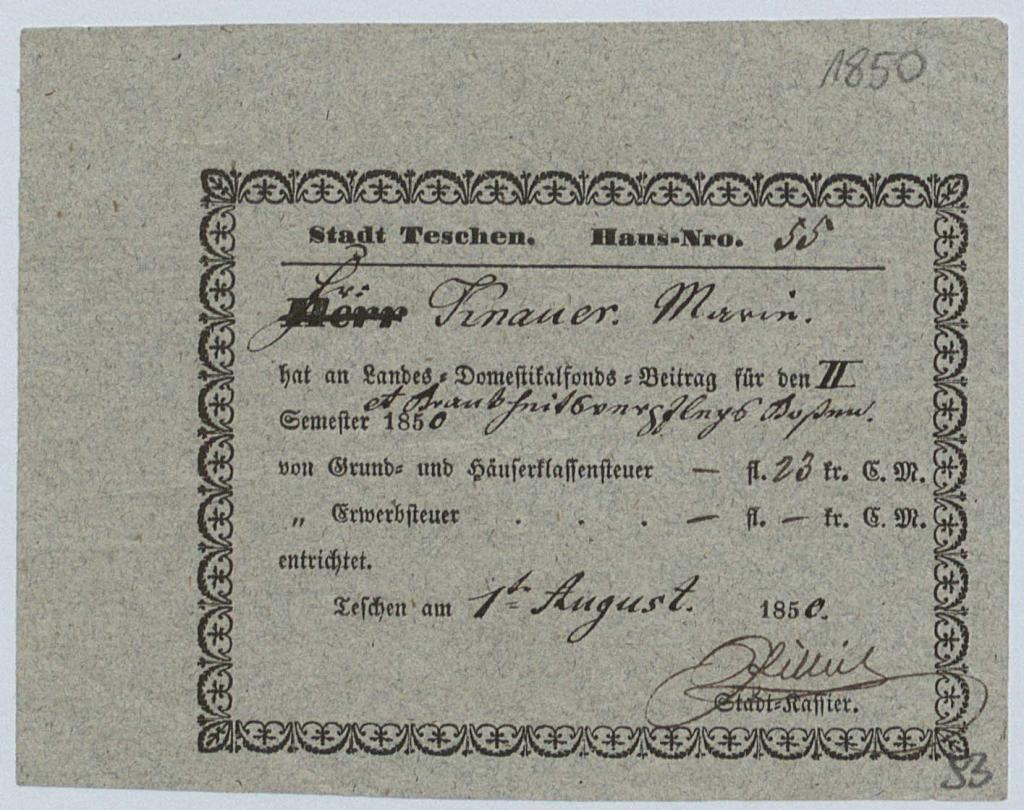 1850
Stadt Teschen. Haus-Nro. 55
Herr Fr: Knauer. Marie.
hat an Landes-Domestikalfonds-Beitrag für den II
et Krankheitsverpflegs Kosten.
Semester 1850
von Grund- und Häuserklassensteuer — fl. 23 kr. C. M.
„ Erwerbsteuer . . . — fl. — kr. C. M.
entrichtet.
Teschen am 1tn August. 1850.
Stadt-Kassier.
53